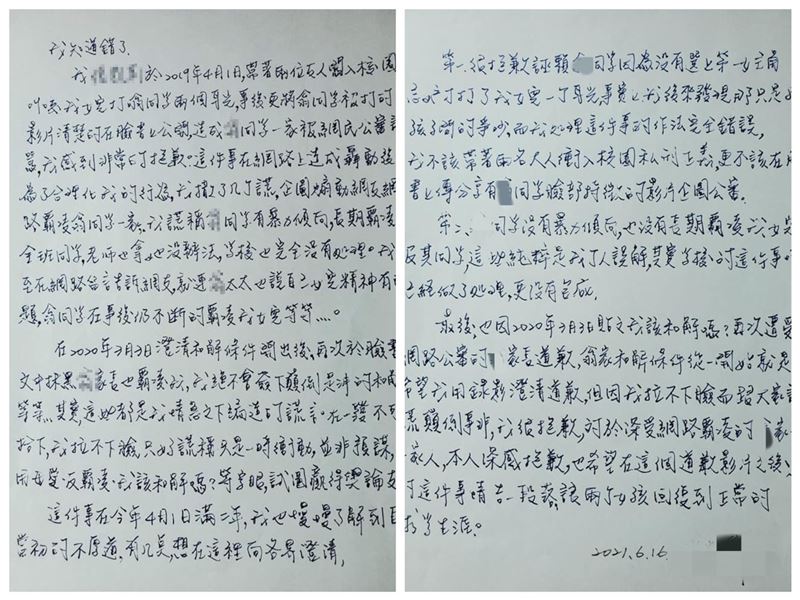 我知道錯了
我 於2019年4月1日,帶著兩位友人闖入校園
叫唆我女兒打翁同學兩個耳光,事後更將翁同學被打的
影片清楚的在臉書上公開,造成 同學一家被網民公審
罵,我感到非常的抱歉。這件事在網路上造成轟動後
為了合理化我的行為,我撒了几個謊,企圖煽動網友網
路霸凌翁同學一家,我謊稱 同學有暴力傾向,長期霸凌
全班同學,老師也拿他沒辦法,學校也完全沒有處理。我
至在網路留言告訴網友,就連 太太也說自己女兒精神有
題,翁同學在事後仍不斷的霸凌我女兒等等...。
在2020年3月3日澄清和解條件開出後,再次於臉書
文中抹黑 家長也霸凌我,我絕不會簽下顛倒是非的和
等等,其實這些都是我情急之下編造的謊言。在一發不可
拾下,我拉不下臉,只好謊稱只是一時衝動,並非預謀,
用母愛反霸凌、我該和解嗎?等字眼,試圖贏得輿論
這件事在今年4月1日滿二年,我也慢慢了解到自
當初的不厚道,有几點,想在這裡向各界澄清,
第一、很抱歉誣賴 同學因為沒有選上第一女主角
打了我女兒一個耳光,事實上我後來發現那只是
孩子間的爭吵,而我處理這件事的作法完全錯誤,
我不該帶著兩名大人衝入校園私刑正義,更不該在
書上傳分享有 同學臉部特徵的影片企圖公審。
第二、 同學沒有暴力傾向,也沒有長期霸凌我女兒
及其同學,這些純粹是我個人誤解,其實學校對這件事
已經做了處理,更沒有
最後,也因2020年3月3日貼文我該和解嗎?再次遭受
網路公審的 家長道歉,翁家和解條件從一開始就是
希望我用錄影澄清道歉,但因我拉不下臉而
謊顛倒事非,我很抱歉,對於深受網路霸凌的 家
一家人,本人深感抱歉,也希望在這個道歉影片之後,
這件事情告一段落,讓兩個女孩回復到正常的
求學生涯。
2021.6.16